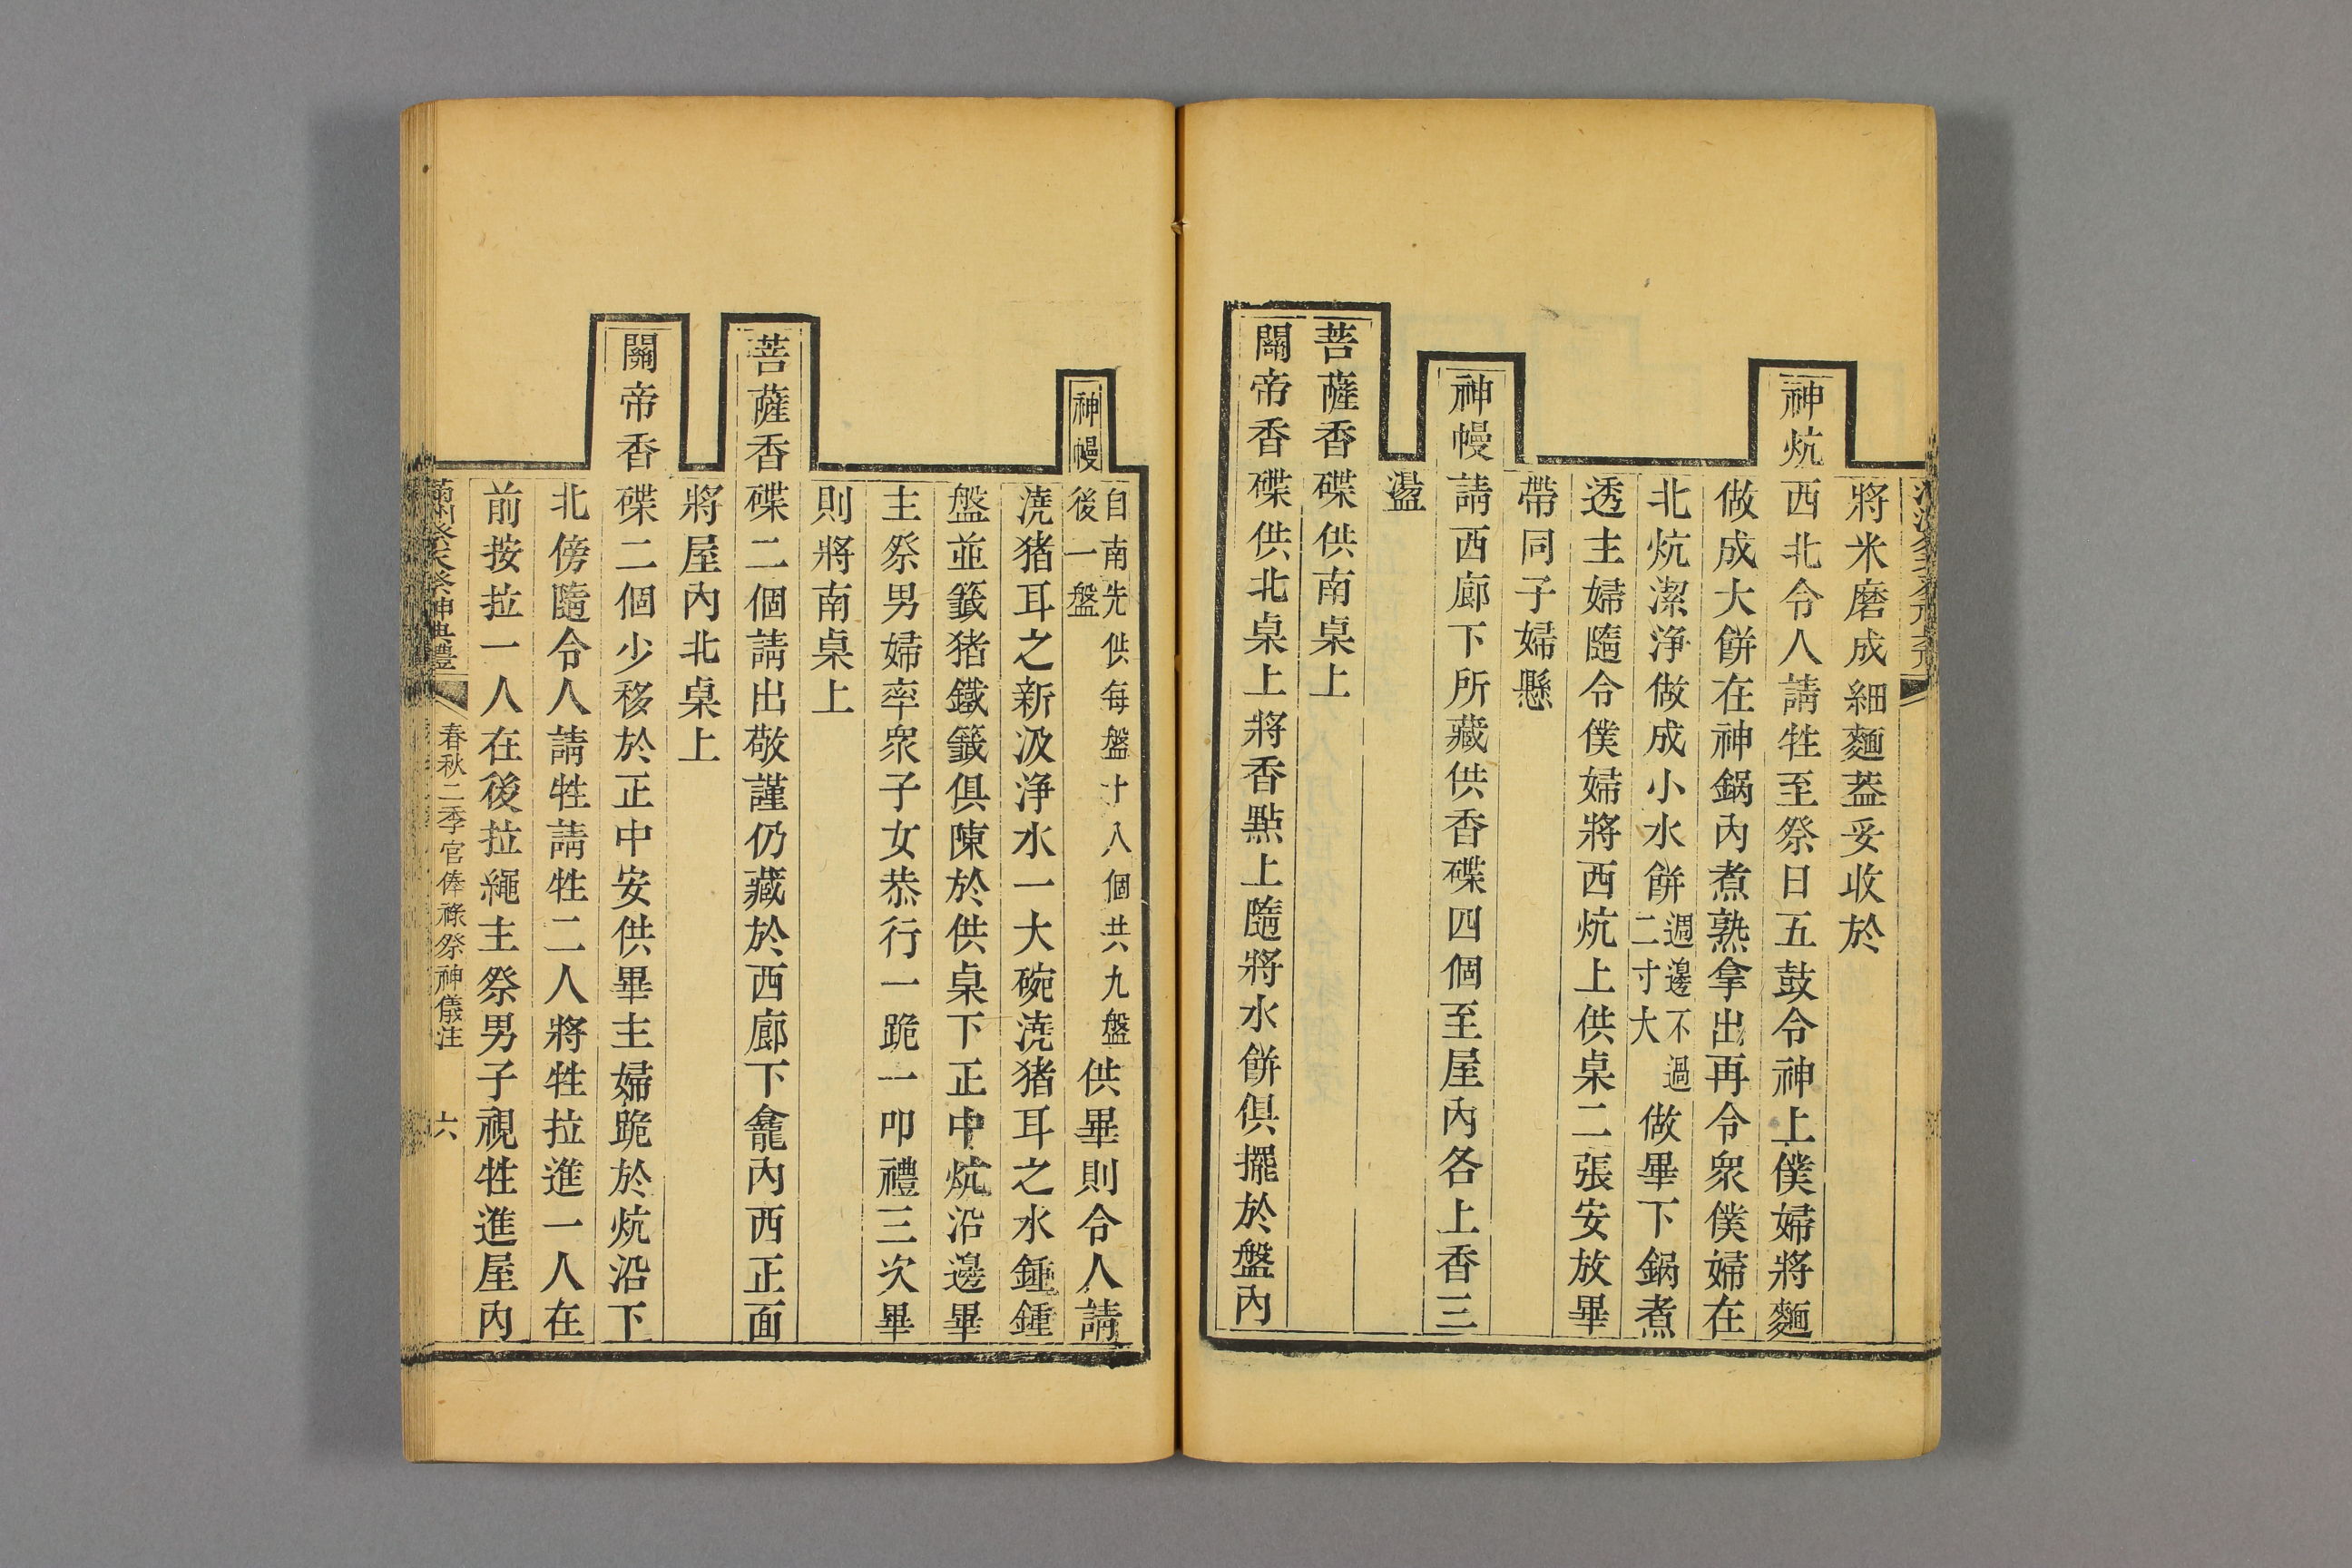 將米磨成細麵葢妥收於
神炕西北令人請牲至祭日五鼓令神上僕婦將麵
做成大餅在神鍋內煮熟拿出再令衆僕婦在
北炕潔淨做成小水餅週邊不過二寸大做畢下鍋煮
透主婦隨令僕婦將西炕上供桌二張安放畢
帶同子婦懸
神幔請西廊下所藏供香碟四個至屋內各上香三
盪
菩薩香碟供南桌上
關帝香碟供北桌上將香㸃上隨將水餅俱擺於盤內
神幔自南先供每盤十八個共九盤後一盤供畢則令人請
澆猪耳之新汲淨水一大碗澆猪耳之水鍾鍾
盤並籤猪鐵籤俱陳於供桌下正中炕沿邊畢
主祭男婦率衆子女恭行一跪一叩禮三次畢
則將南桌上
菩薩香碟二個請出敬謹仍藏於西廊下龕內西正面
將屋內北桌上
關帝香碟二個少移於正中安供畢主婦跪於炕沿下
北傍隨令人請牲請牲二人將牲拉進一人在
前按拉一人在後拉繩主祭男子視牲進屋內
滿洲祭天祭神典禮 春秋二季官俸祿祭神儀注 六